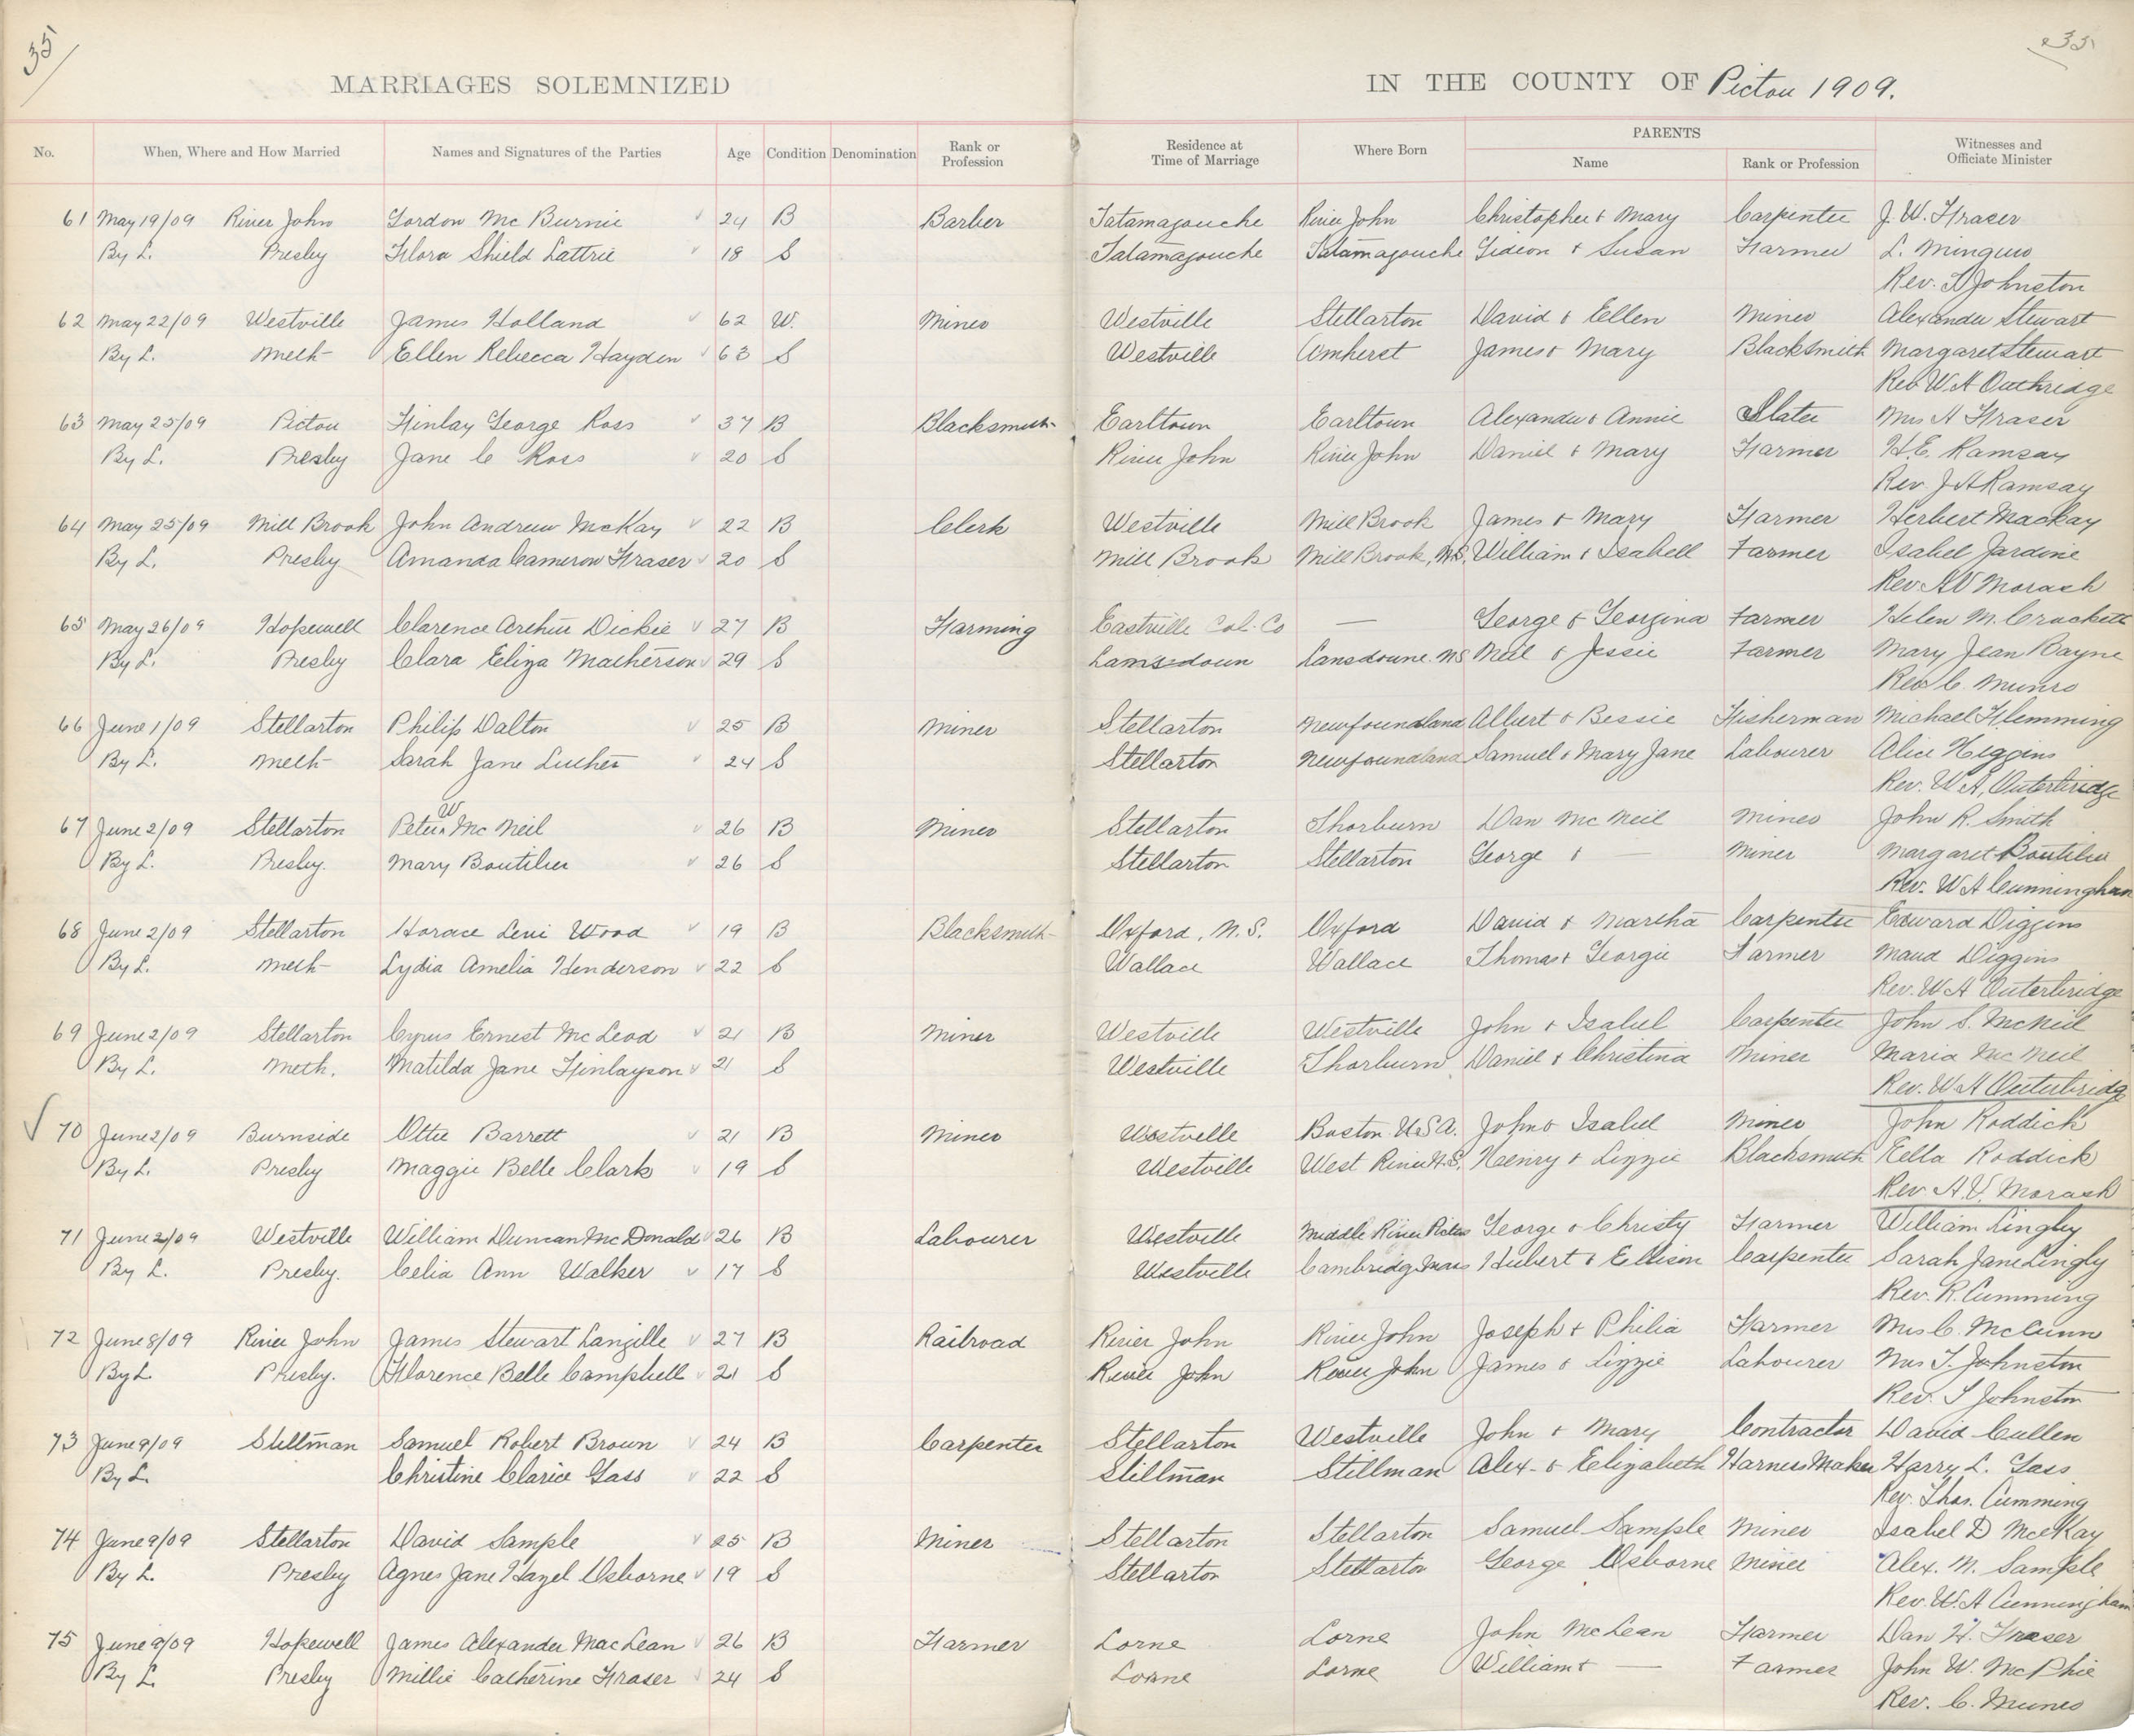 35
35
MARRIAGES SOLEMNIZED IN THE COUNTY OF Pictou 1909.
No. When, Where and How Married Names and Signatures of the Parties Age Condition Denomination Rank or Profession Residence at Time of Marriage Where Born PARENTS Name Rank or Profession Witnesses and Officiate Minister
61 May 19/09 River John Gordon McBurnie 24 B Barber Tatamagouche River John Christopher & Mary Carpenter J. W. Fraser
By L. Presby Flora Shield Lattrie 18 S Tatamagouche Tatamagouche Gideon & Susan Farmer L. Mingus
Rev. T Johnston
62 May 22/09 Westville James Holland 62 W. Miner Westville Stellarton David & Ellen Miner Alexander Stewart
By L. Meth Ellen Rebecca Hayden 63 S Westville Amherst James & Mary Blacksmith Margaret Stewart
Rev W A Outhridge
63 May 25/09 Pictou Finlay George Ross 37 B Blacksmith Earltown Earltown Alexander & Annie Slater Mrs A Fraser
By L. Presby Jane C Ross 20 S River John River John Daniel & Mary Farmer H. E. Ramsay
Rev. J A Ramsay
64 May 25/09 Mill Brook John Andrew McKay 22 B Clerk Westville Mill Brook James & Mary Farmer Herbert Mackay
By L. Presby Amanda Cameron Fraser 20 S Mill Brook Mill Brook, N.S. William & Isabell Farmer Isabel Jardine
Rev. A V Morash
65 May 26/09 Hopewell Clarence Arthur Dickie 27 B Farming Eastville Col. Co — George & Georgina Farmer Helen M. Crockett
By L. Presby Clara Eliza Matherson 29 S Lansdoun Lansdowne. N S Neil & Jessie Farmer Mary Jean Bayne
Rev C. Munro
66 June 1/09 Stellarton Philip Dalton 25 B Miner Stellarton Newfoundland Albert & Bessie Fisherman Michael Flemming
By L. Meth Sarah Jane Luther 24 S Stellarton Newfoundland Samuel & Mary Jane Labourer Alice Higgins
Rev. W A, Outerbridge
67 June 2/09 Stellarton Peter W McNeil 26 B Miner Stellarton Thorburn Dan McNeil Miner John R. Smith
By L. Presby. Mary Boutilier 26 S Stellarton Stellarton George & — Miner Margaret Boutilier
Rev. W A Cunningham
68 June 2/09 Stellarton Horace Levi Wood 19 B Blacksmith Oxford, N.S. Oxford David & Martha Carpenter Edward Diggins
By L. Meth Lydia Amelia Henderson 22 S Wallace Wallace Thomas & Georgie Farmer Maud Diggins
Rev. W A Outerbridge
69 June 2/09 Stellarton Cyrus Ernest McLeod 21 B Miner Westville Westville John & Isabel Carpenter John S. McNeil
By L. Meth. Matilda Jane Finlayson 21 S Westville Thorburn Daniel & Christina Miner Maria McNeil
Rev. W A Outerbridg
70 June 2/09 Burnside Ottie Barrett 21 B Miner Westville Boston U.S.A. John & Isabel Miner John Roddick
By L. Presby Maggie Belle Clark 19 S Westville West River N.S. Henry & Lizzie Blacksmith Ella Roddick
Rev A. V. Morash
71 June 2/09 Westville William Duncan McDonald 26 B Labourer Westville Middle River Pictou George & Christy Farmer William Lingley
By L. Presby. Celia Ann Walker 17 S Westville Cambridg Mass Hubert & Ellison Carpenter Sarah Jane Lingly
Rev. R. Cumming
72 June 8/09 River John James Stewart Langille 27 B Railroad River John River John Joseph & Philia Farmer Mrs C. McCunn
By L Presby. Florence Belle Campbell 21 S River John River John James & Lizzie Labourer Mrs T. Johnston
Rev. T Johnston
73 June 9/09 Stillman Samuel Robert Brown 24 B Carpenter Stellarton Westville John & Mary Contractor David Cullen
By L. Christine Clarice Gass 22 S Stillman Stillman Alex. & Elizabeth Harness Maker Harry L. Gass
Rev. Thos. Cumming
74 June 9/09 Stellarton David Sample 25 B Miner Stellarton Stellarton Samuel Sample Miner Isabel D McKay
By L. Presby Agnes Jane Hazel Osborne 19 S Stellarton Stellarton George Osborne Miner Alex. M. Sample
Rev. W. A Cunningham
75 June 9/09 Hopewell James Alexander MacLean 26 B Farmer Lorne Lorne John McLean Farmer Dan H. Fraser
By L Presby Millie Catherine Fraser 24 S Lorne Lorne William & — Farmer John W. McPhie
Rev. C. Munro